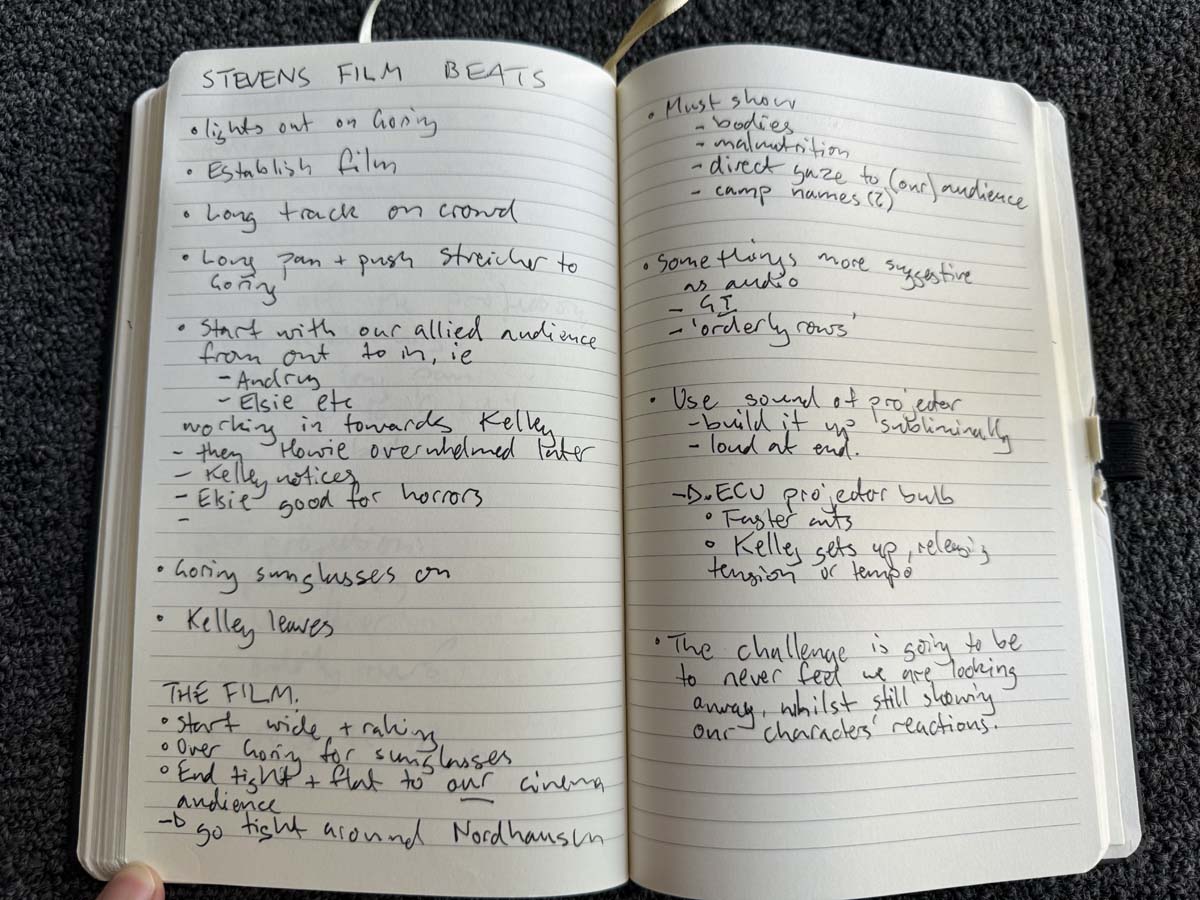 STEVENS FILM BEATS
• lights out on Goring
• Establish film
• Long track on crowd
• Long pan + push Streicher to
Goring
• Start with our allied audience
from out to in, ie
- Andrus
- Elsie etc
working in towards Kelley
- then Howie overwhelmed later
- Kelley notices
- Elsie good for horrors
-
• Goring sunglasses on
• Kelley leaves
THE FILM.
• Start wide + raking
• Over Goring for sunglasses
• End tight + flat to our cinema
audience
→ go tight around Nordhausen
• Must show
- bodies
- malnutrition
- direct gaze to (our) audience
- camp names (?)
• Some things more suggestive
as audio
- GI
- 'orderly rows'
• Use sound of projector
- build it up 'subliminally
- loud at end.
→ ECU projector bulb
• Faster cuts
• Kelley gets up, releasing
tension or tempo
• The challenge is going to be
to never feel we are looking
away, whilst still showing
our characters' reactions.